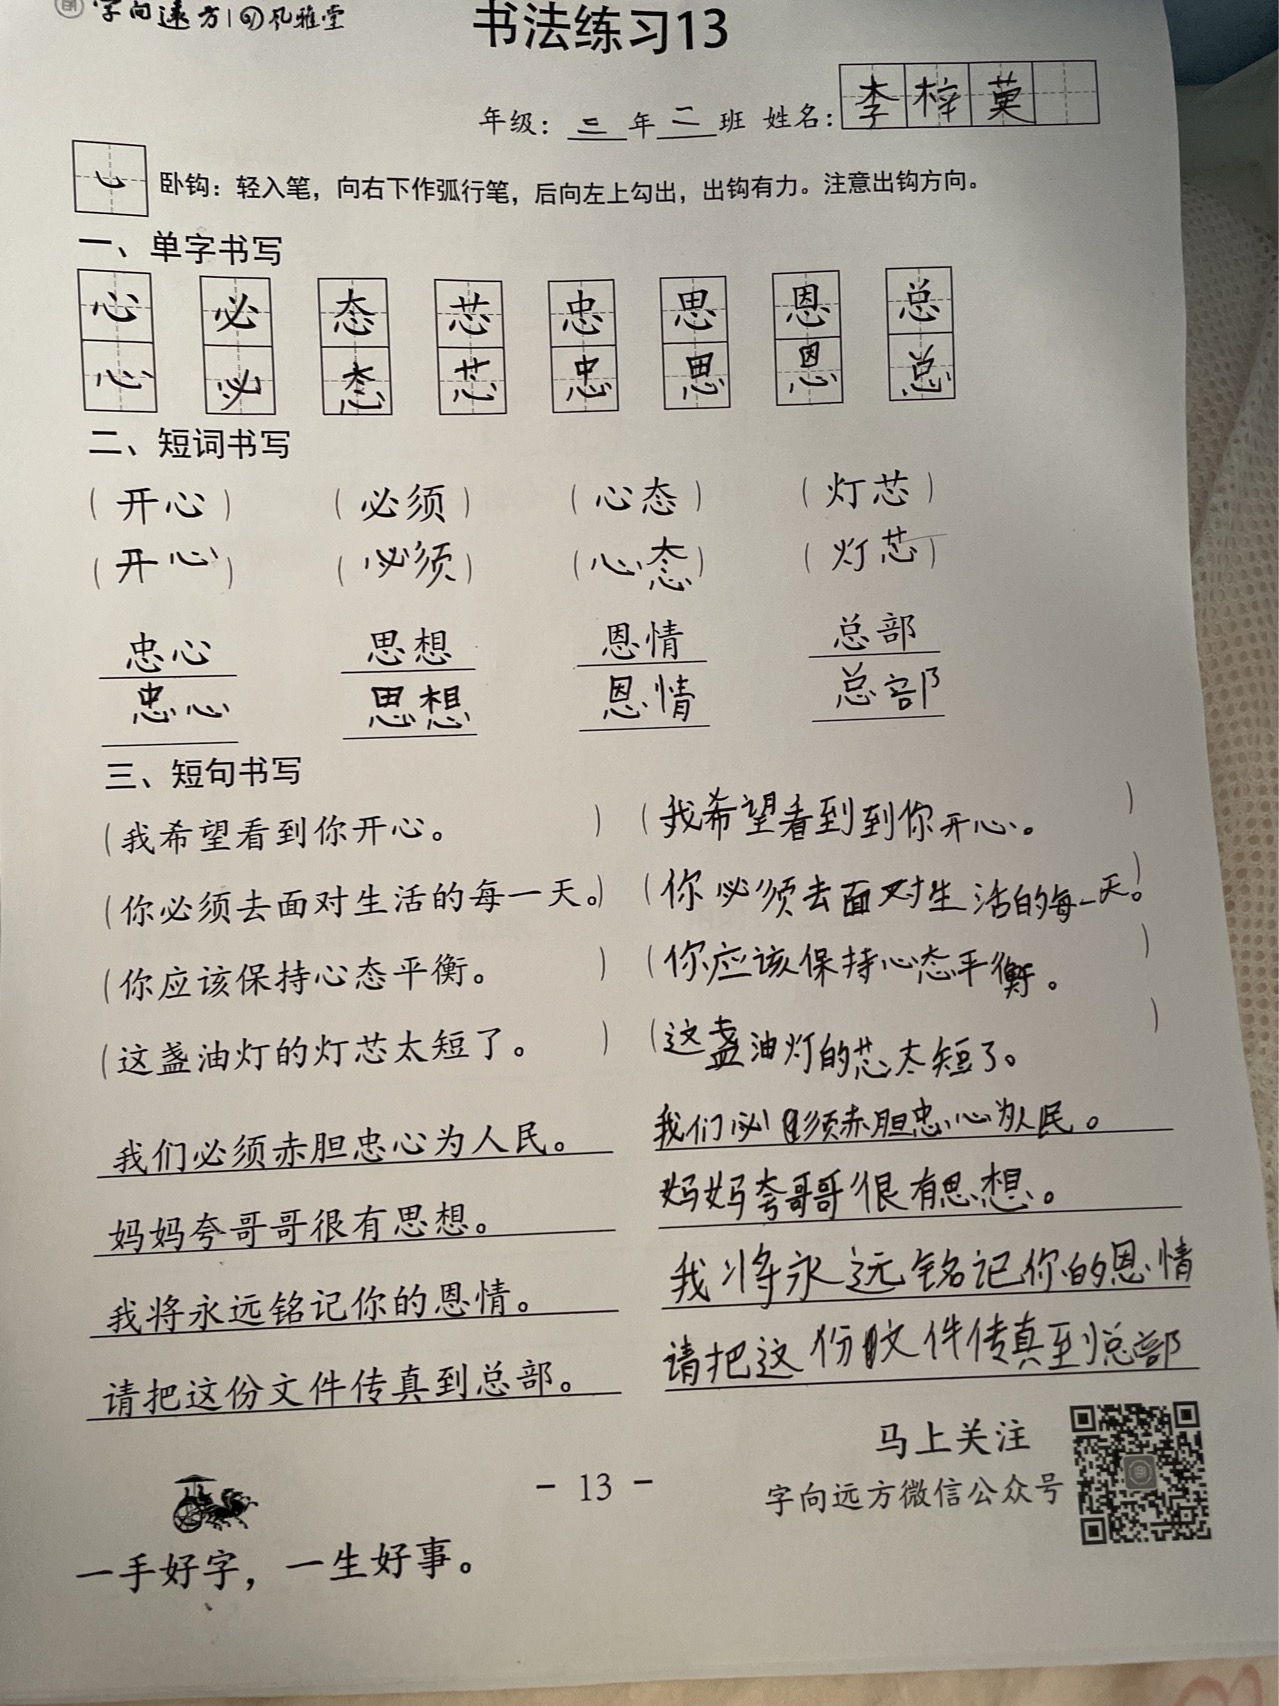 字向远方 风雅堂
书法练习13
年级：三年二班 姓名：李梓萸
卧钩：轻入笔，向右下作弧行笔，后向左上勾出，出钩有力。注意出钩方向。
一、单字书写
心 必 态 芯 忠 思 恩 总
心 必 态 芯 忠 思 恩 总
二、短词书写
（开心） （必须） （心态） （灯芯）
（开心） （必须） （心态） （灯芯）
忠心 思想 恩情 总部
忠心 思想 恩情 总部
三、短句书写
（我希望看到你开心。） （我希望看到到你开心。）
（你必须去面对生活的每一天。） （你必须去面对生活的每一天。）
（你应该保持心态平衡。） （你应该保持心态平衡。）
（这盏油灯的灯芯太短了。） （这盏油灯的芯太短了。）
我们必须赤胆忠心为人民。 我们必须赤胆忠心为人民。
妈妈夸哥哥很有思想。 妈妈夸哥哥很有思想。
我将永远铭记你的恩情。 我将永远铭记你的恩情
请把这份文件传真到总部。 请把这份文件传真到总部
马上关注
字向远方微信公众号
- 13 -
一手好字，一生好事。